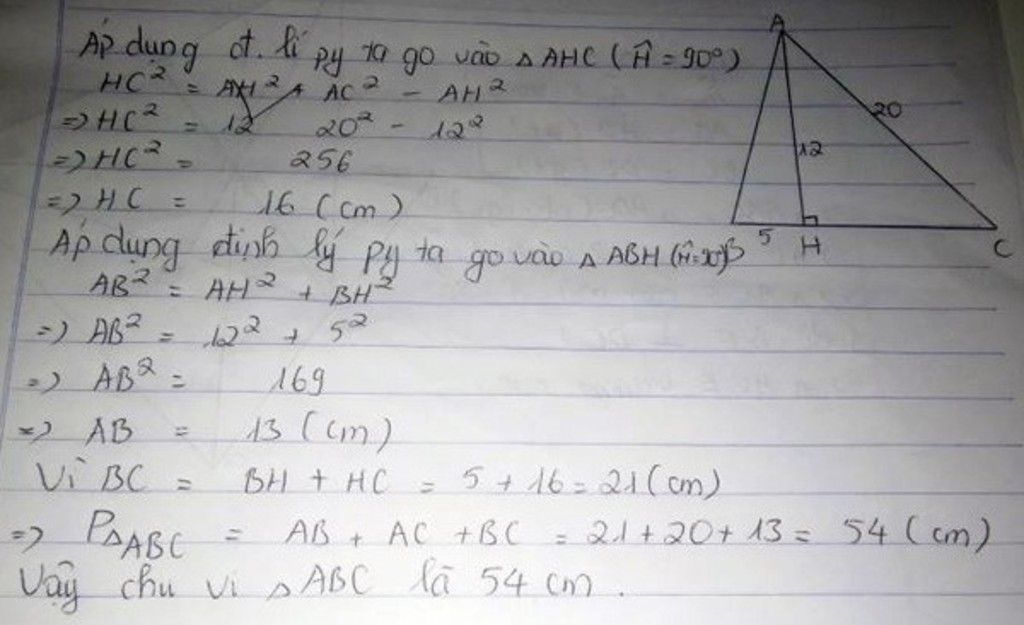 Áp dụng đt. lí py ta go vào △ AHC ( Ĥ = 90°)
HC² = AC² - AH²
=> HC² = 20² - 12²
=> HC² = 256
=> HC = 16 (cm)
Áp dụng định lý py ta go vào △ ABH (Ĥ=90°)
AB² = AH² + BH²
=> AB² = 12² + 5²
=> AB² = 169
=> AB = 13 (cm)
Vì BC = BH + HC = 5 + 16 = 21 (cm)
=> P△ABC = AB + AC + BC = 21 + 20 + 13 = 54 (cm)
Vậy chu vi △ ABC là 54 cm.
A
20
12
B 5 H C